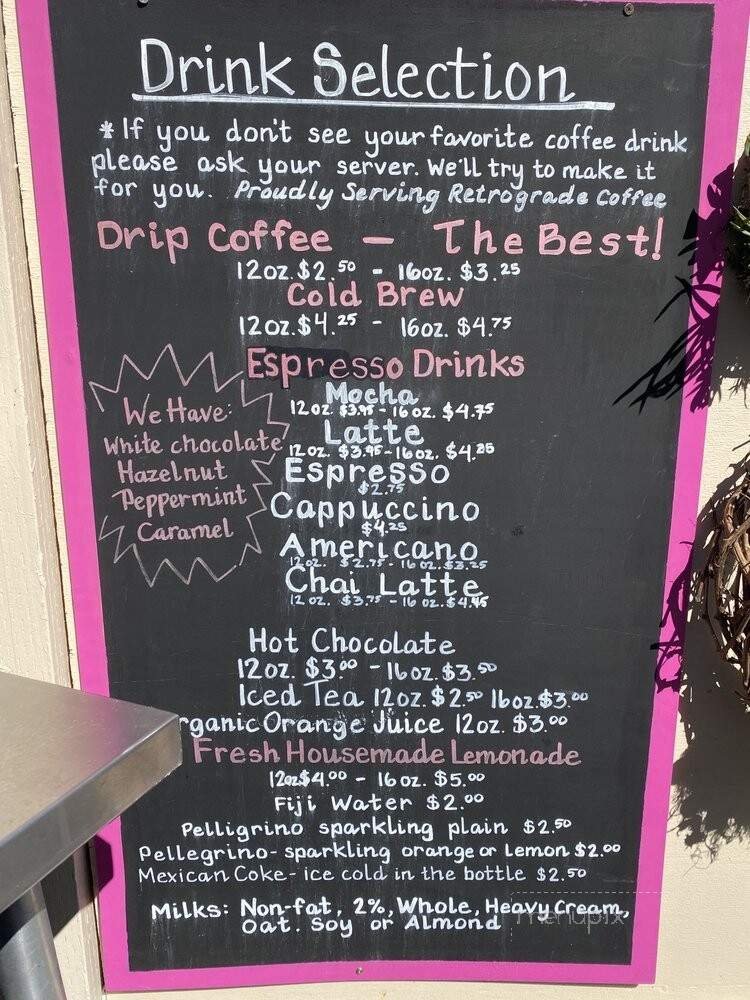 Drink Selection
* If you don't see your favorite coffee drink
please ask your server. We'll try to make it
for you. Proudly Serving Retrograde Coffee
Drip Coffee — The Best!
12oz. $2.50 - 16oz. $3.25
Cold Brew
12oz. $4.25 - 16oz. $4.75
Espresso Drinks
Mocha
12 oz. $3.95 - 16 oz. $4.75
Latte
12 oz. $3.95 - 16 oz. $4.25
Espresso
$2.75
Cappuccino
$4.25
Americano
12 oz. $2.75 - 16 oz. $3.25
Chai Latte
12 oz. $3.75 - 16 oz. $4.45
We Have:
White chocolate
Hazelnut
Peppermint
Caramel
Hot Chocolate
12oz. $3.00 - 16oz. $3.50
Iced Tea 12oz. $2.50 16oz. $3.00
rganic Orange Juice 12oz. $3.00
Fresh Housemade Lemonade
12oz $4.00 - 16 oz. $5.00
Fiji Water $2.00
Pelligrino sparkling plain $2.50
Pellegrino - sparkling orange or Lemon $2.00
Mexican Coke - ice cold in the bottle $2.50
Milks: Non-fat, 2%, Whole, Heavy Cream,
Oat. Soy or Almond
menupix